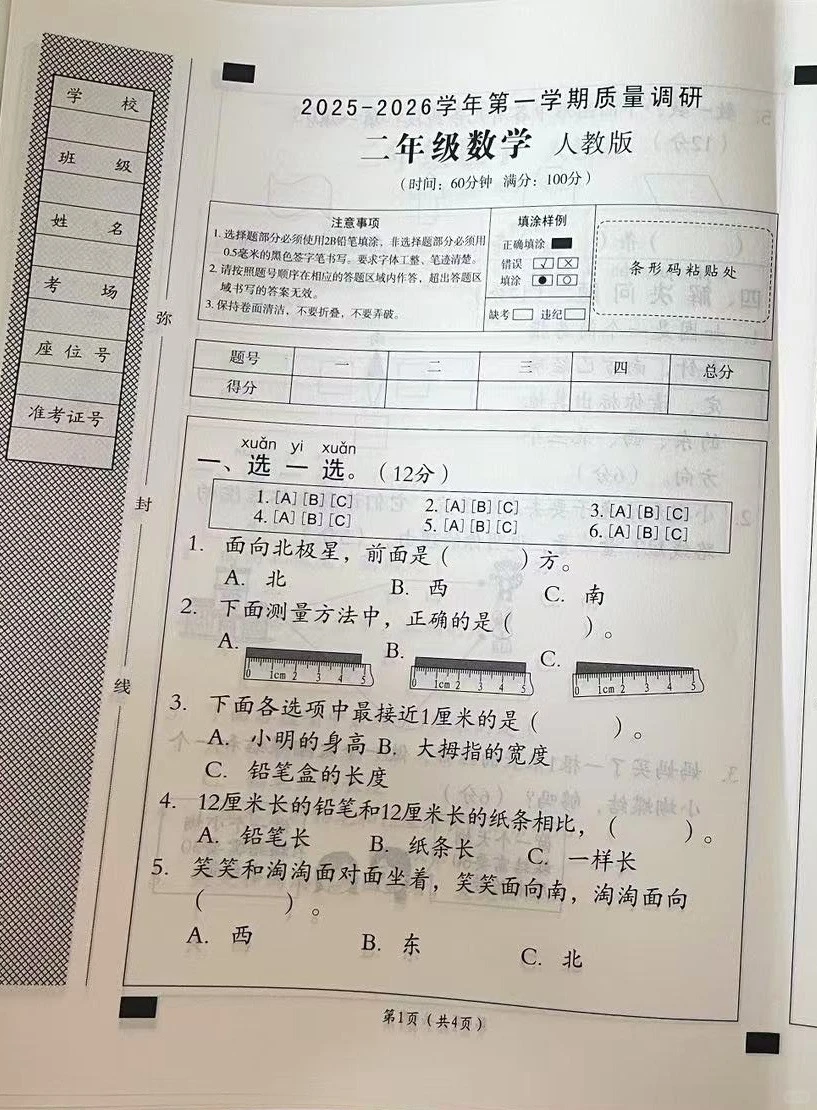 学校
班级
姓名
考场
座位号
准考证号
弥
封
线
2025-2026学年第一学期质量调研
二年级数学 人教版
(时间：60分钟 满分：100分)
注意事项
1. 选择题部分必须使用2B铅笔填涂，非选择题部分必须用
0.5毫米的黑色签字笔书写。要求字体工整、笔迹清楚。
2. 请按照题号顺序在相应的答题区域内作答，超出答题区
域书写的答案无效。
3. 保持卷面清洁，不要折叠，不要弄破。
填涂样例
正确填涂
错误
填涂
缺考 违纪
条形码粘贴处
题号 一 二 三 四 总分
得分
xuǎn yi xuǎn
一、选一选。(12分)
1. [A] [B] [C] 2. [A] [B] [C] 3. [A] [B] [C]
4. [A] [B] [C] 5. [A] [B] [C] 6. [A] [B] [C]
1. 面向北极星，前面是( )方。
A. 北 B. 西 C. 南
2. 下面测量方法中，正确的是( )。
A. B. C.
0 1cm 2 3 4 5 0 1cm 2 3 4 5 0 1cm 2 3 4 5
3. 下面各选项中最接近1厘米的是( )。
A. 小明的身高 B. 大拇指的宽度
C. 铅笔盒的长度
4. 12厘米长的铅笔和12厘米长的纸条相比，( )。
A. 铅笔长 B. 纸条长 C. 一样长
5. 笑笑和淘淘面对面坐着，笑笑面向南，淘淘面向
( )。
A. 西 B. 东 C. 北
第1页(共4页)